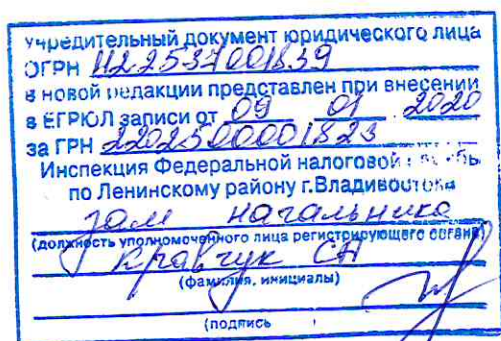 Учредительный документ юридического лица
ОГРН 1122537001839
в новой редакции представлен при внесении
в ЕГРЮЛ записи от 09 01 2020
за ГРН 2202500001823
Инспекция Федеральной налоговой службы
по Ленинскому району г.Владивостока
зам начальника
(должность уполномоченного лица регистрирующего органа)
Кравчук СН
(фамилия, инициалы)
(подпись